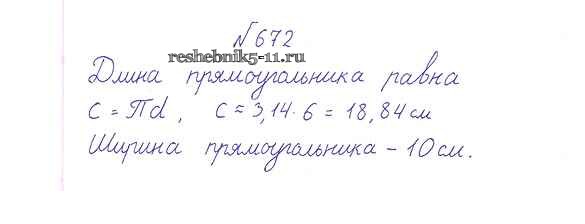 №672
reshebnik5-11.ru
Длина прямоугольника равна
C = πd, C = 3,14 · 6 = 18,84 см
Ширина прямоугольника – 10 см.